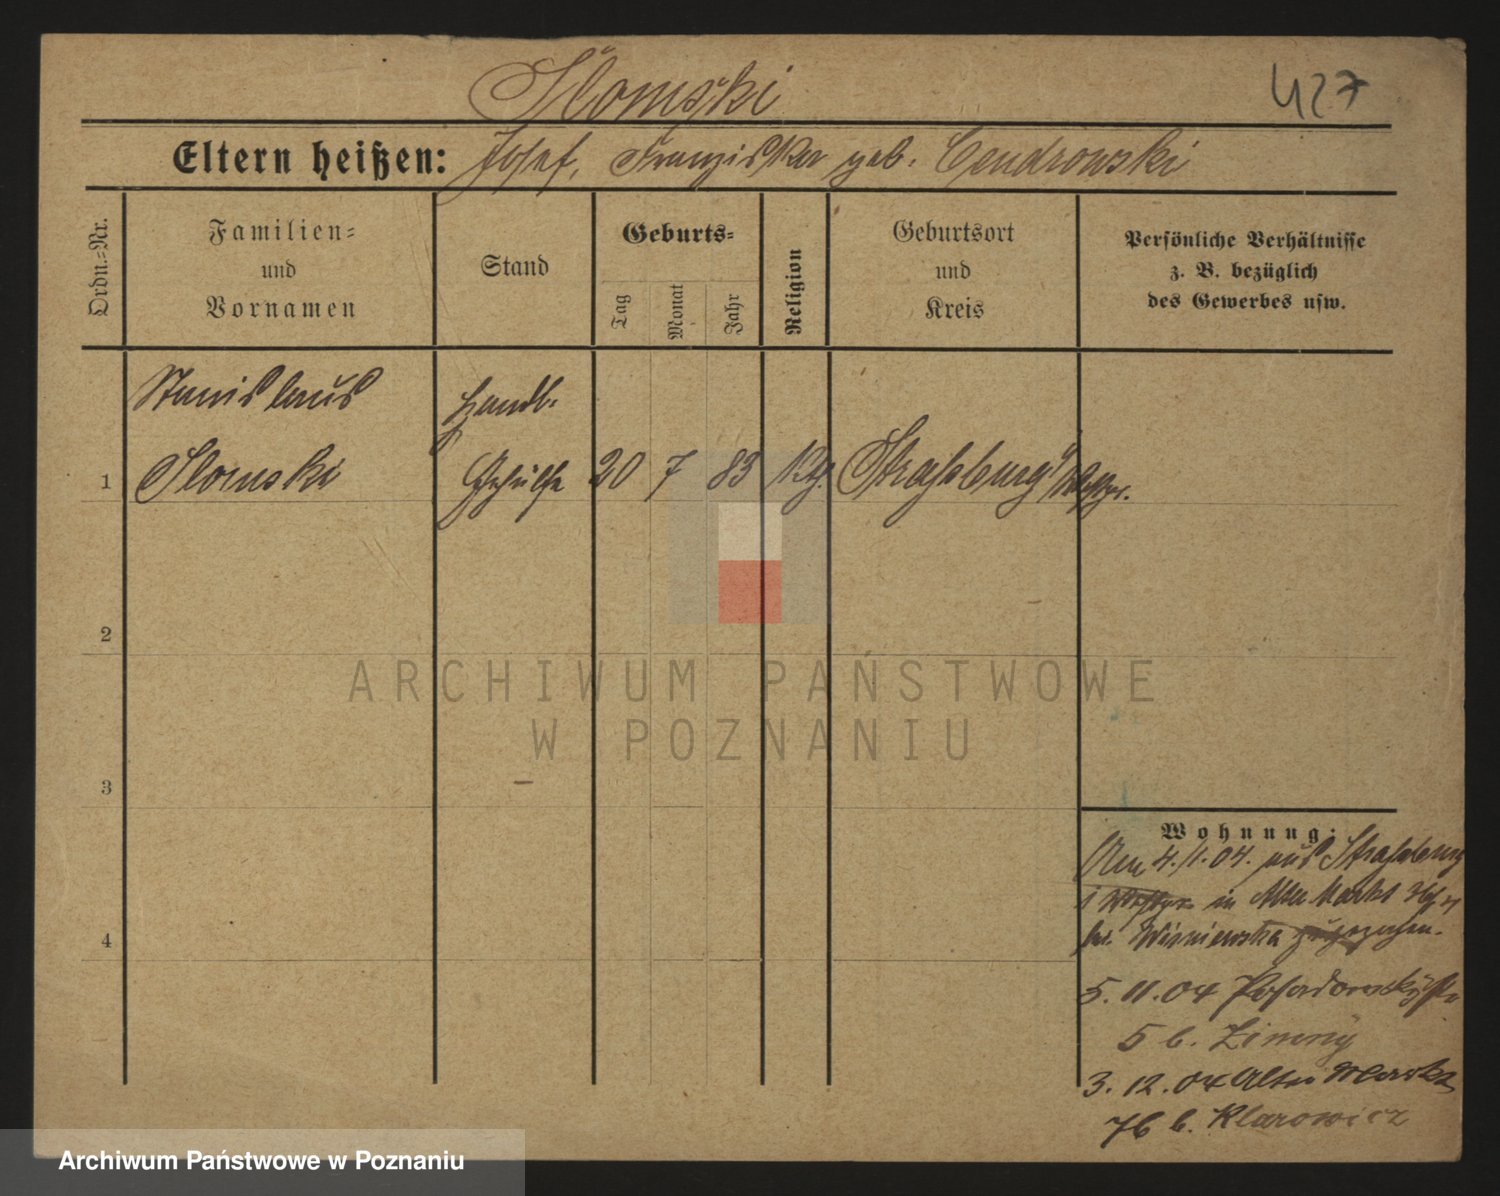 Słomski
427
Eltern heißen: Josef, Franziska geb. Cendrowski
Ordn.-Nr.
Familien-
und
Vornamen
Stand
Geburts-
Tag
Monat
Jahr
Religion
Geburtsort
und
Kreis
Persönliche Verhältnisse
z. B. bezüglich
des Gewerbes usw.
Stanislaus
Handl.
1
Slomski
Gehülfe
20
7
83
Kth.
Strassburg Westpr.
2
3
4
Wohnung:
Am 4./1.04. aus Strassburg
i Westpr. in Alter Markt
bei Wisniewska zugezogen.
5. 11. 04 Posadowskystr
5 b. Zimny
3. 12. 04 Alter Markt
76 b. Klarowicz
ARCHIWUM PAŃSTWOWE
W POZNANIU
Archiwum Państwowe w Poznaniu